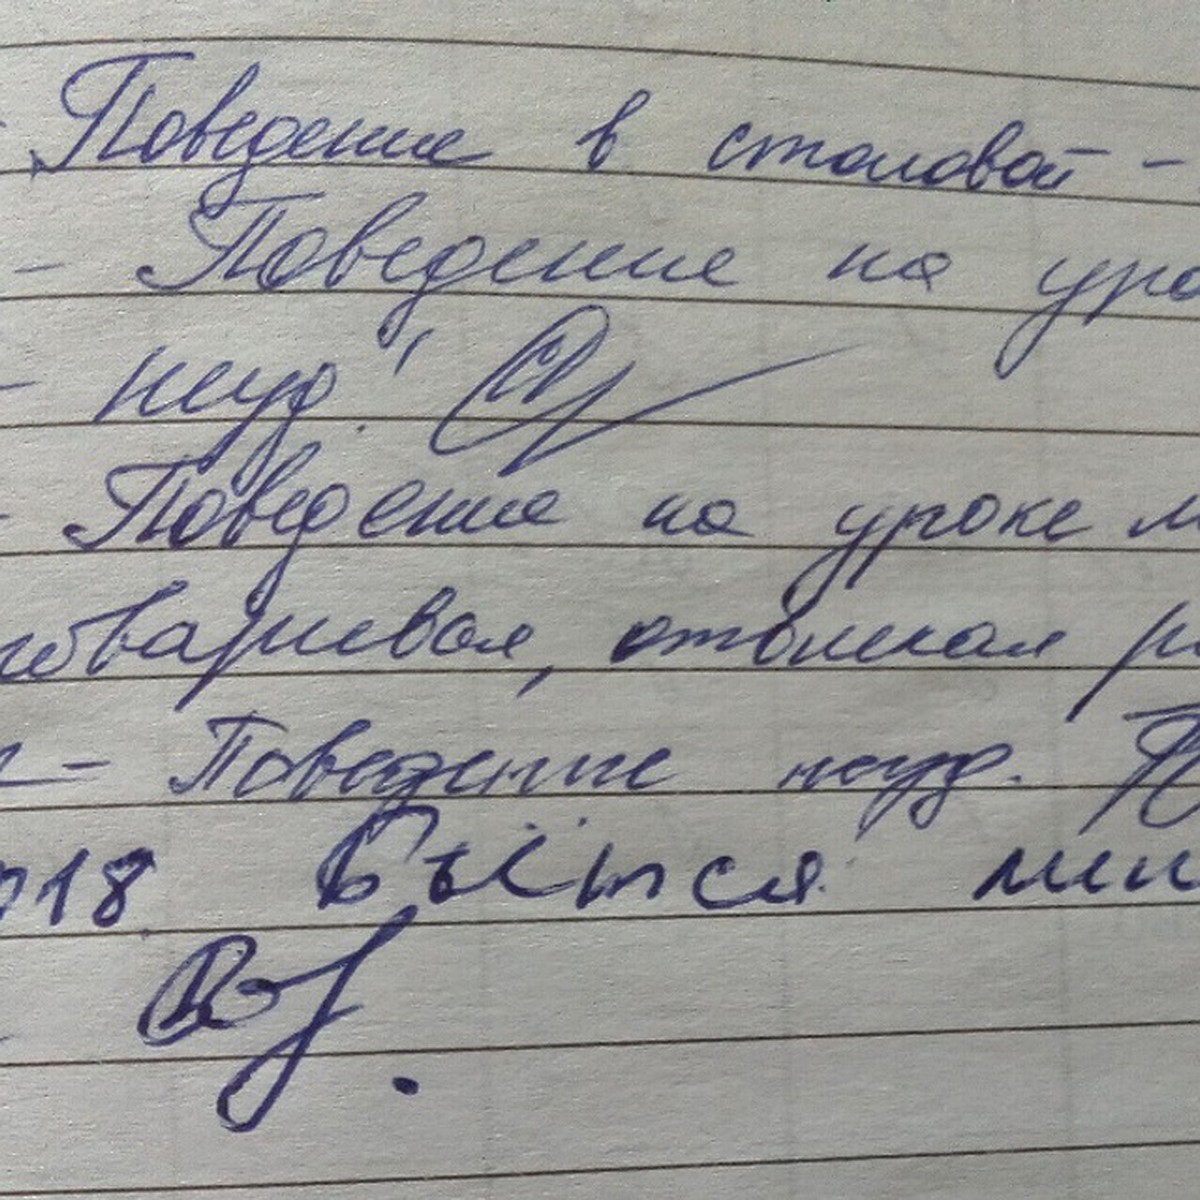 - Поведение в столовой -
- Поведение на уро
- неуд.
- Поведение на уроке м
говаривал, отвлекал р
- Поведение неуд.
018 Бьётся лин